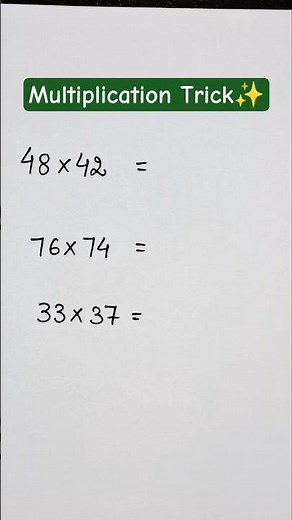 Multiplication Trick✨
48×42 =
76×74 =
33×37=